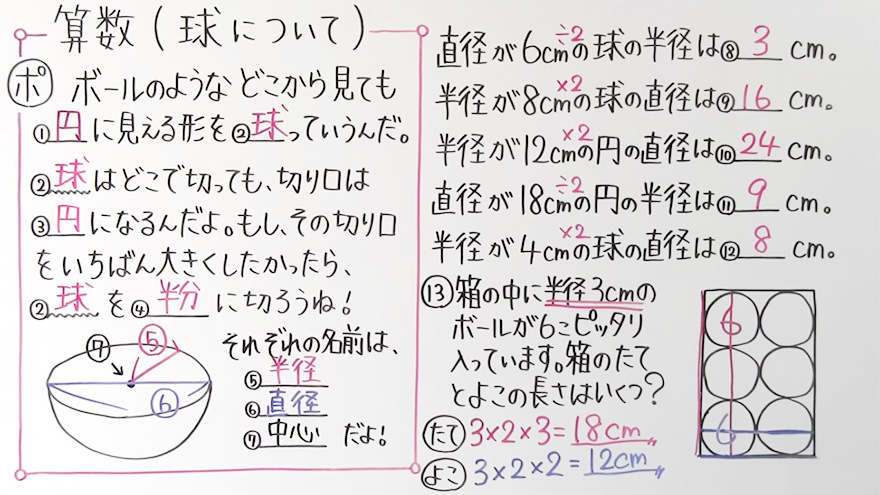 算数(球について)
ポ ボールのようなどこから見ても
①円に見える形を②球っていうんだ。
②球はどこで切っても、切り口は
③円になるんだよ。もし、その切り口
をいちばん大きくしたかったら、
②球を④半分に切ろうね!
⑦ ⑤
⑥
それぞれの名前は、
⑤半径
⑥直径
⑦中心 だよ!
÷2
直径が6cmの球の半径は⑧3cm。
×2
半径が8cmの球の直径は⑨16cm。
×2
半径が12cmの円の直径は⑩24cm。
÷2
直径が18cmの円の半径は⑪9cm。
×2
半径が4cmの球の直径は⑫8cm。
⑬箱の中に半径3cmの
ボールが6こピッタリ
入っています。箱のたて
とよこの長さはいくつ?
たて 3×2×3=18cm
よこ 3×2×2=12cm
6
6